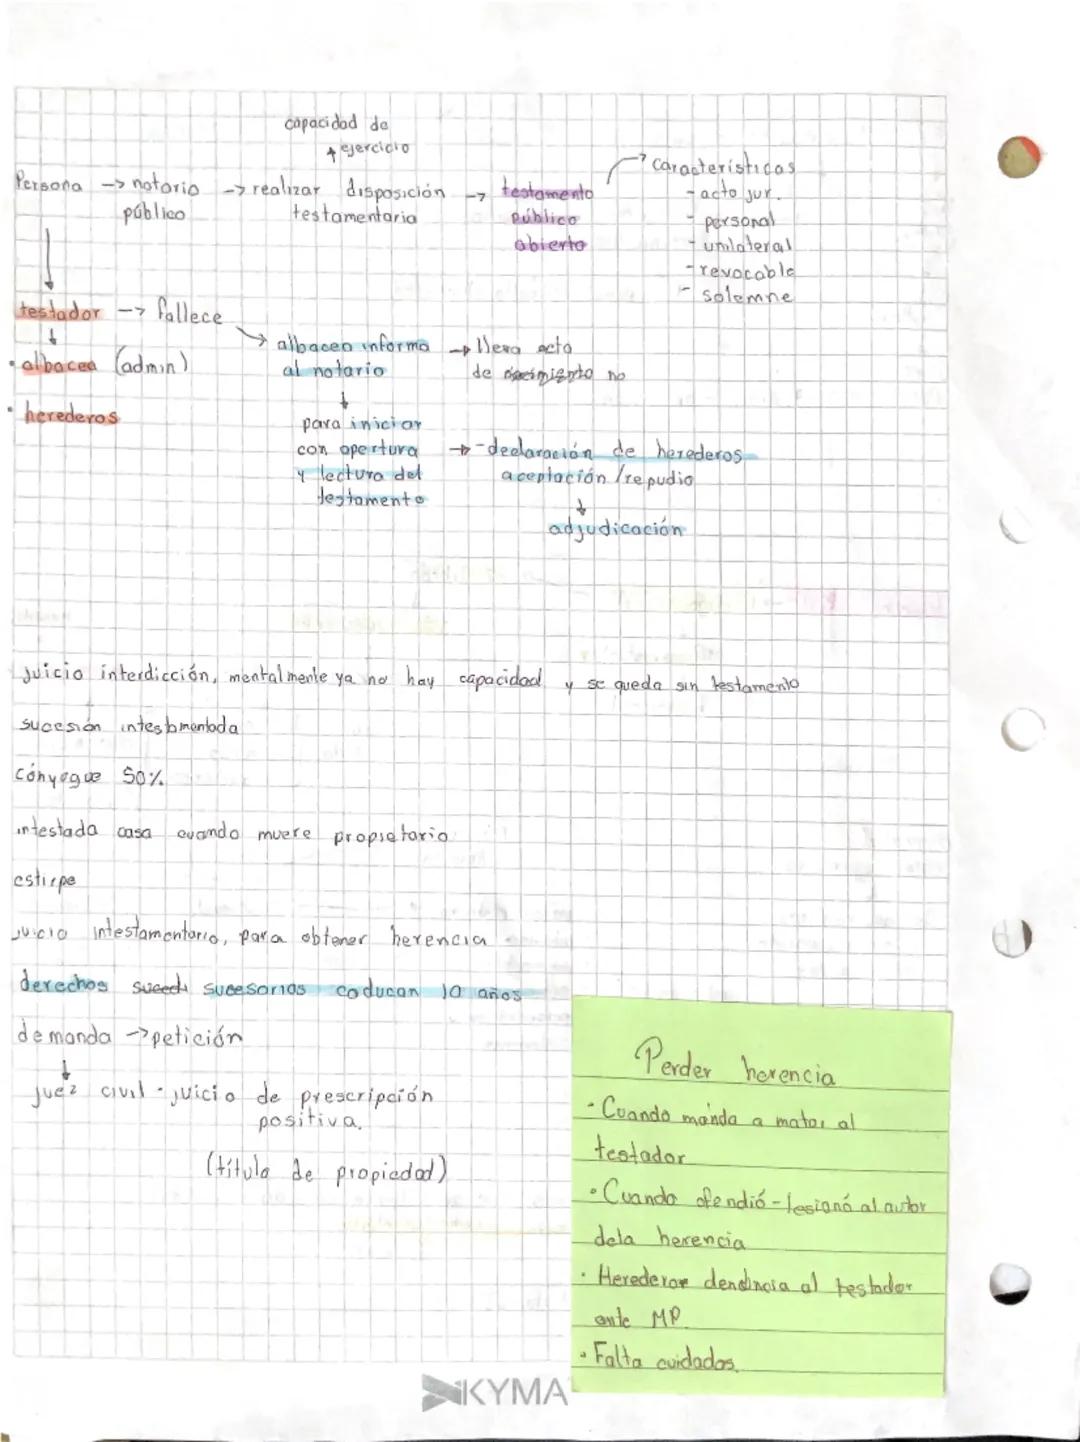 capacidad de
ejercicio
Persona -> notario -> realizar disposición -> testamento
público testamentaria público
abierto
características
- acto jur.
- personal
- unilateral
- revocable
- solemne
testador -> fallece
· albacea (admin)
· herederos
albacea informa -> lleva acta
al notario de nacimiento no
para iniciar
con apertura -> - declaración de herederos
y lectura del aceptación / repudio
testamento
adjudicación
juicio interdicción, mentalmente ya no hay capacidad y se queda sin testamento
sucesión intestamentada
cónyegue 50%
intestada casa cuando muere propietario
estirpe
juicio intestamentario, para obtener herencia
derechos sucedi sucesorios caducan 10 años
demanda -> petición
juez civil - juicio de prescripción
positiva.
(título de propiedad)
Perder herencia
· Cuando manda a matar al
testador
· Cuando ofendió - lesionó al autor
dela herencia
· Herederos al testador
ante MP.
· Falta cuidados.
KYMA